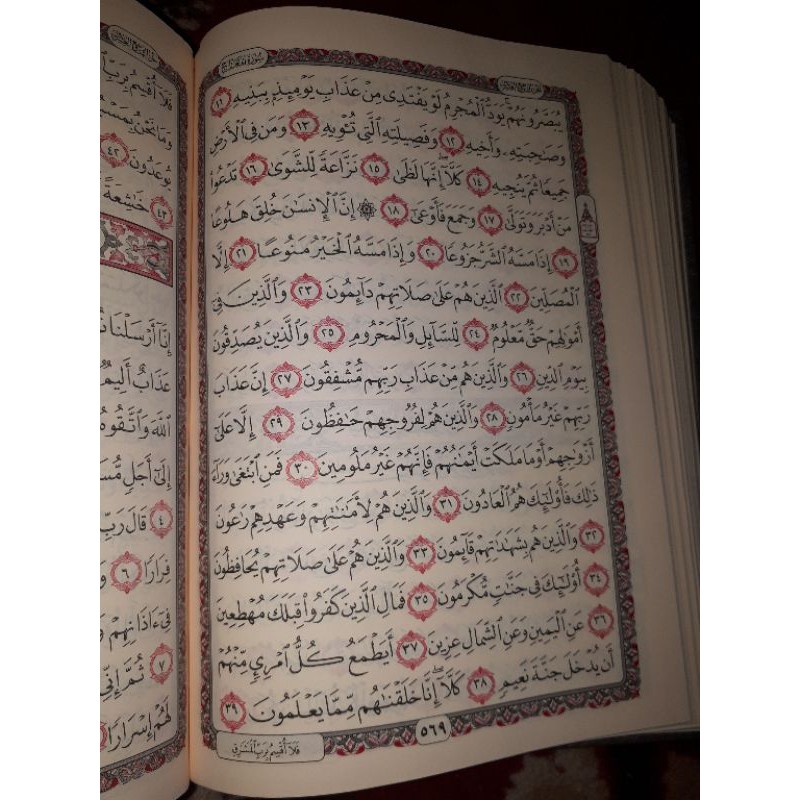 يُبَصَّرُونَهُمْ يَوَدُّ ٱلْمُجْرِمُ لَوْ يَفْتَدِى مِنْ عَذَابِ يَوْمِئِذٍۭ بِبَنِيهِ ١١
وَصَٰحِبَتِهِۦ وَأَخِيهِ ١٢ وَفَصِيلَتِهِ ٱلَّتِى تُـْٔوِيهِ ١٣ وَمَن فِى ٱلْأَرْضِ
جَمِيعًا ثُمَّ يُنجِيهِ ١٤ كَلَّآ إِنَّهَا لَظَىٰ ١٥ نَزَّاعَةً لِّلشَّوَىٰ ١٦ تَدْعُوا۟
مَنْ أَدْبَرَ وَتَوَلَّىٰ ١٧ وَجَمَعَ فَأَوْعَىٰٓ ١٨ ۞ إِنَّ ٱلْإِنسَٰنَ خُلِقَ هَلُوعًا
١٩ إِذَا مَسَّهُ ٱلشَّرُّ جَزُوعًا ٢٠ وَإِذَا مَسَّهُ ٱلْخَيْرُ مَنُوعًا ٢١ إِلَّا
ٱلْمُصَلِّينَ ٢٢ ٱلَّذِينَ هُمْ عَلَىٰ صَلَاتِهِمْ دَآئِمُونَ ٢٣ وَٱلَّذِينَ فِىٓ
أَمْوَٰلِهِمْ حَقٌّ مَّعْلُومٌ ٢٤ لِّلسَّآئِلِ وَٱلْمَحْرُومِ ٢٥ وَٱلَّذِينَ يُصَدِّقُونَ
بِيَوْمِ ٱلدِّينِ ٢٦ وَٱلَّذِينَ هُم مِّنْ عَذَابِ رَبِّهِم مُّشْفِقُونَ ٢٧ إِنَّ عَذَابَ
رَبِّهِمْ غَيْرُ مَأْمُونٍ ٢٨ وَٱلَّذِينَ هُمْ لِفُرُوجِهِمْ حَٰفِظُونَ ٢٩ إِلَّا عَلَىٰٓ
أَزْوَٰجِهِمْ أَوْ مَا مَلَكَتْ أَيْمَٰنُهُمْ فَإِنَّهُمْ غَيْرُ مَلُومِينَ ٣٠ فَمَنِ ٱبْتَغَىٰ وَرَآءَ
ذَٰلِكَ فَأُو۟لَٰٓئِكَ هُمُ ٱلْعَادُونَ ٣١ وَٱلَّذِينَ هُمْ لِأَمَٰنَٰتِهِمْ وَعَهْدِهِمْ رَٰعُونَ
٣٢ وَٱلَّذِينَ هُم بِشَهَٰدَٰتِهِمْ قَآئِمُونَ ٣٣ وَٱلَّذِينَ هُمْ عَلَىٰ صَلَاتِهِمْ يُحَافِظُونَ
٣٤ أُو۟لَٰٓئِكَ فِى جَنَّٰتٍ مُّكْرَمُونَ ٣٥ فَمَالِ ٱلَّذِينَ كَفَرُوا۟ قِبَلَكَ مُهْطِعِينَ
٣٦ عَنِ ٱلْيَمِينِ وَعَنِ ٱلشِّمَالِ عِزِينَ ٣٧ أَيَطْمَعُ كُلُّ ٱمْرِئٍ مِّنْهُمْ
أَن يُدْخَلَ جَنَّةَ نَعِيمٍ ٣٨ كَلَّآ إِنَّا خَلَقْنَٰهُم مِّمَّا يَعْلَمُونَ ٣٩
٥٦٩
فَلَآ أُقْسِمُ بِرَبِّ ٱلْمَشَٰرِقِ
فَلَآ أُقْسِمُ بِرَبِّ
وَمَا نَحْنُ
يُوعَدُونَ ٤٢
٤٣ خَٰشِعَةً
إِنَّآ أَرْسَلْنَا
عَذَابٌ أَلِيمٌ
ٱللَّهَ وَٱتَّقُوهُ
إِلَىٰٓ أَجَلٍ
٤ قَالَ رَبِّ
فِرَارًا ٦
فِىٓ ءَاذَانِهِمْ
٧ ثُمَّ إِنِّى
لَهُمْ إِسْرَارًا